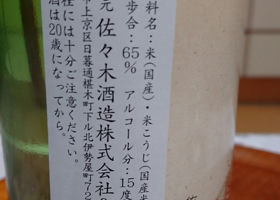 料名：米(国産)・米こうじ(国産米
歩合：65％　アルコール分：15度
元 佐々木酒造株式会社
市上京区日暮通椹木町下ル北伊勢屋町72
栓には十分ご注意ください。
酒は20歳になってから。